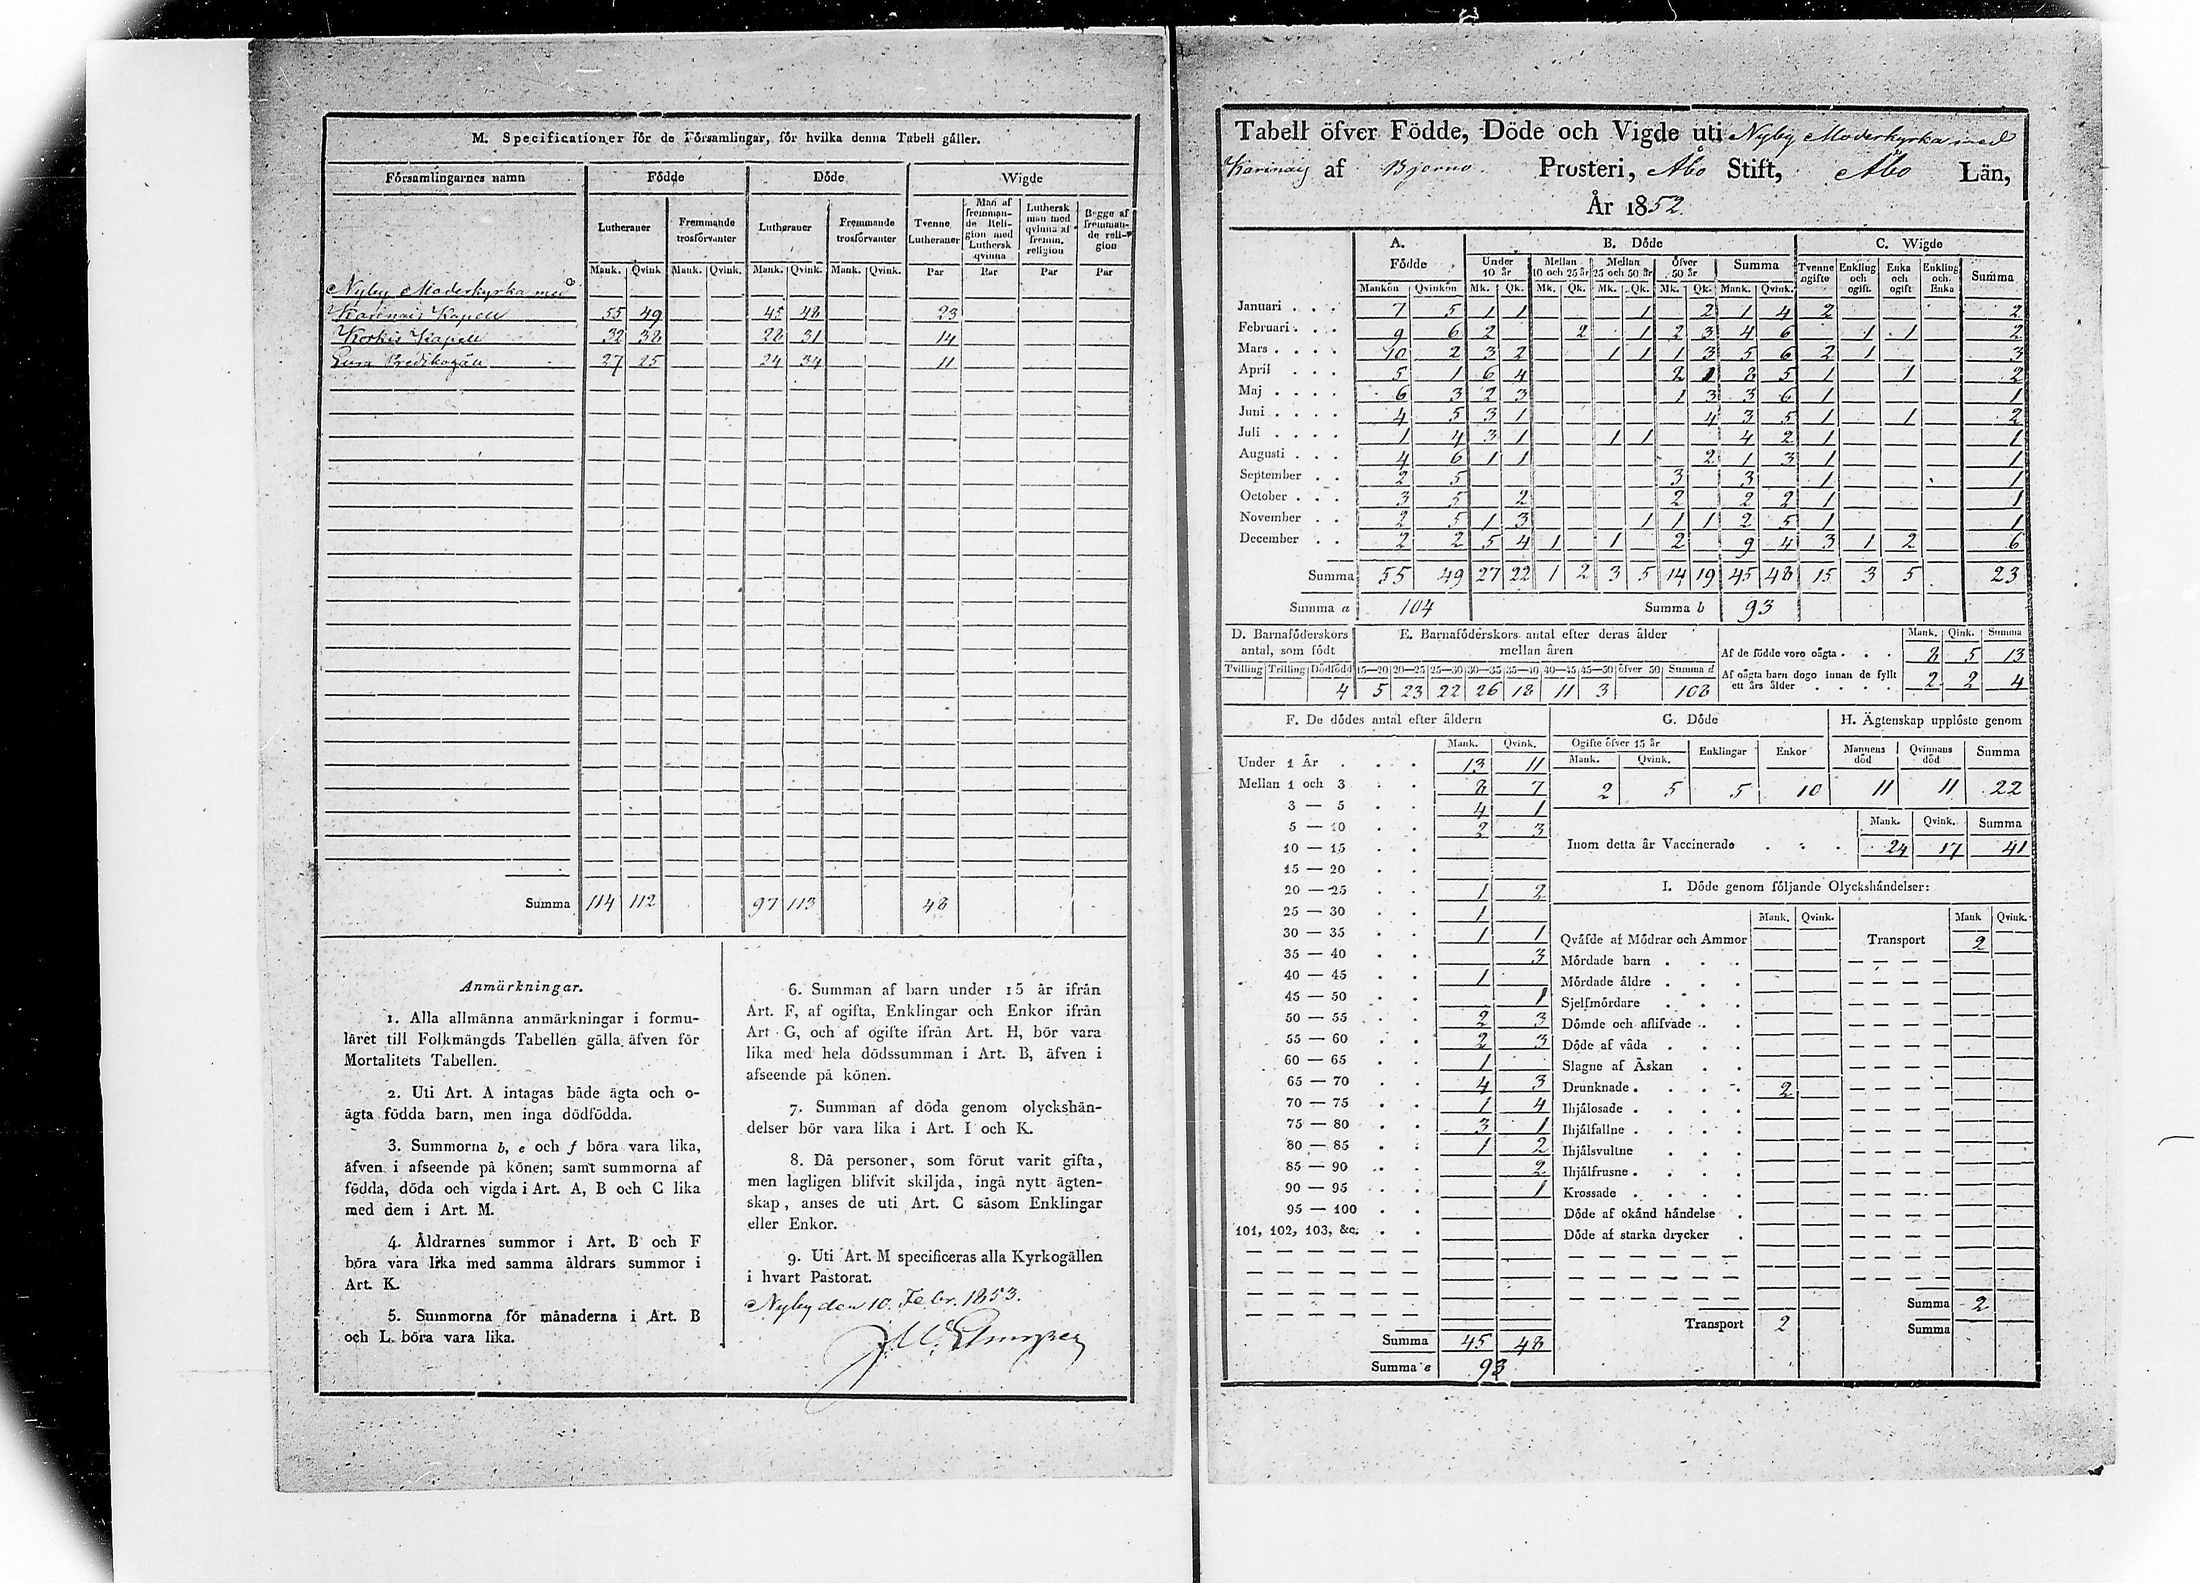 M. Specificationer för de Församlingar, för hvilka denna Tabell gäller.
Församlingarnes namn Födde Döde Wigde
Lutheraner Fremmande trosförvanter Lutheraner Fremmande trosförvanter Tvenne Lutheraner Man af fremmande Religion med Luthersk qvinna Luthersk man med qvinna af fremm. religion Begge af fremmande religion
Mank. Qvink. Mank. Qvink. Mank. Qvink. Mank. Qvink. Par Par Par Par
Nyby Moderkyrka med
Karinais Kapell 55 49 45 48 23
Koskis Kapell 32 38 28 31 14
Eura Predikogäll 27 25 24 34 11
Summa 114 112 97 113 48
Anmärkningar.
1. Alla allmänna anmärkningar i formu-
läret till Folkmängds Tabellen gälla äfven för
Mortalitets Tabellen.
2. Uti Art. A intagas både ägta och o-
ägta födda barn, men inga dödfödda.
3. Summorna b, e och f böra vara lika,
äfven i afseende på könen; samt summorna af
födda, döda och vigda i Art. A, B och C lika
med dem i Art. M.
4. Åldrarnes summor i Art. B och F
böra vara lika med samma åldrars summor i
Art. K.
5. Summorna för månaderna i Art. B
och L. böra vara lika.
6. Summan af barn under 15 år ifrån
Art. F, af ogifta, Enklingar och Enkor ifrån
Art. G, och af ogifte ifrån Art. H, bör vara
lika med hela dödssumman i Art. B, äfven i
afseende på könen.
7. Summan af döda genom olyckshän-
delser bör vara lika i Art. I och K.
8. Då personer, som förut varit gifta,
men lagligen blifvit skiljda, ingå nytt ägten-
skap, anses de uti Art. C såsom Enklingar
eller Enkor.
9. Uti Art. M specificeras alla Kyrkogällen
i hvart Pastorat.
Nyby den 10. Febr. 1853.
Tabell öfver Födde, Döde och Vigde uti Nyby Moderkyrka med
Karinais af Bjerno Prosteri, Åbo Stift, Åbo Län,
År 1852.
A. Födde B. Döde C. Wigde
Under 10 år Mellan 10 och 25 år Mellan 25 och 50 år Öfver 50 år Summa Tvenne ogifte Enkling och ogift. Enka och ogift Enkling och Enka Summa
Mankön Qvinkön Mk. Qk. Mk. Qk. Mk. Qk. Mk. Qk. Mank. Qvink.
Januari 7 5 1 1 1 2 1 4 2 2
Februari 9 6 2 2 1 2 3 4 6 1 1 2
Mars 10 2 3 2 1 1 1 3 5 6 2 1 3
April 5 1 6 4 2 1 8 5 1 1 2
Maj 6 3 2 3 1 3 3 6 1 1
Juni 4 5 3 1 4 3 5 1 1 2
Juli 1 4 3 1 1 1 4 2 1 1
Augusti 4 6 1 1 2 1 3 1 1
September 2 5 3 3 1 1
October 3 5 2 2 2 2 1 1
November 2 5 1 3 1 1 1 2 5 1 1
December 2 2 5 4 1 1 2 9 4 3 1 2 6
Summa 55 49 27 22 1 2 3 5 14 19 45 48 15 3 5 23
Summa a 104 Summa b 93
D. Barnaföderskors antal, som födt
Tvilling Trilling Dödfödd
4
E. Barnaföderskors antal efter deras ålder mellan åren
15—20 20—25 25—30 30—35 35—40 40—45 45—50 öfver 50 Summa d
5 23 22 26 18 11 3 108
Mank. Qink. Summa
Af de födde voro oägta 8 5 13
Af oägta barn dogo innan de fyllt ett års ålder 2 2 4
F. De dödes antal efter åldern
Mank. Qvink.
Under 1 År 13 11
Mellan 1 och 3 8 7
3 — 5 4 1
5 — 10 2 3
10 — 15
15 — 20
20 — 25 1 2
25 — 30 1
30 — 35 1 1
35 — 40 3
40 — 45 1
45 — 50 1
50 — 55 2 3
55 — 60 2 3
60 — 65 1
65 — 70 4 3
70 — 75 1 4
75 — 80 3 1
80 — 85 1 2
85 — 90 2
90 — 95 1
95 — 100
101, 102, 103, &c.
Summa 45 48
Summa e 93
G. Döde
Ogifte öfver 15 år Enklingar Enkor
Mank. Qvink.
2 5 5 10
H. Ägtenskap upplöste genom
Mannens död Qvinnans död Summa
11 11 22
Mank. Qvink. Summa
Inom detta år Vaccinerade 24 17 41
I. Döde genom följande Olyckshändelser:
Mank. Qvink. Mank Qvink.
Qväfde af Mödrar och Ammor Transport 2
Mördade barn
Mördade äldre
Sjelfmördare
Dömde och aflifvade
Döde af våda
Slagne af Åskan
Drunknade 2
Ihjälosade
Ihjälfallne
Ihjälsvultne
Ihjälfrusne
Krossade
Döde af okänd händelse
Döde af starka drycker
Summa 2
Transport 2 Summa